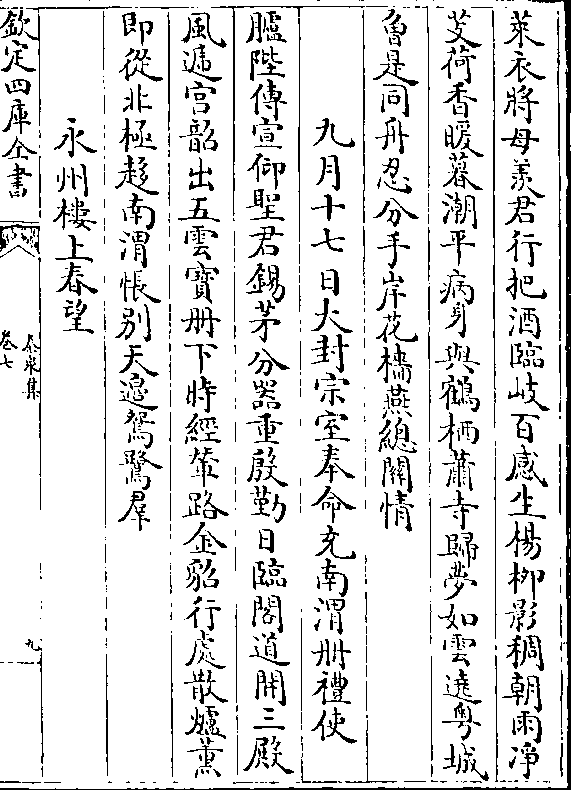 萊衣將母羨君行把酒臨岐百感生楊柳影稠朝雨淨
芰荷香暖暮潮平病身與鶴栖蕭寺歸夢如雲遶粤城
魯是同舟忍分手岸花檣燕總關情
九月十七日大封宗室奉命充南渭册禮使
臚陛傳宣仰聖君錫茅分器重殷勤日臨閣道開三殿
風遞宫韶出五雲寶册下時經輦路金貂行處散爐薰
即從北極趍南渭悵别天邊鴛鷺羣
永州樓上春望
欽定四庫全書
泰泉集
卷七
九